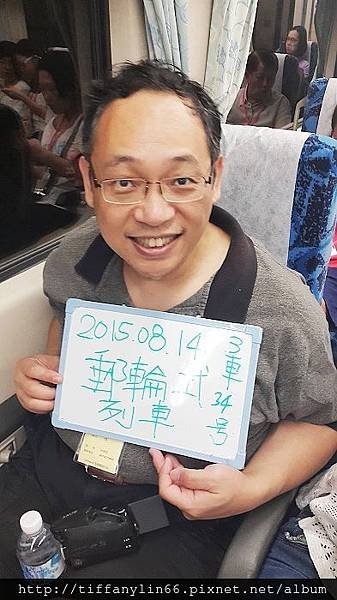 2015.08.14
郵輪式
列車
3車34号
http://tiffanylin66.pixnet.net/album